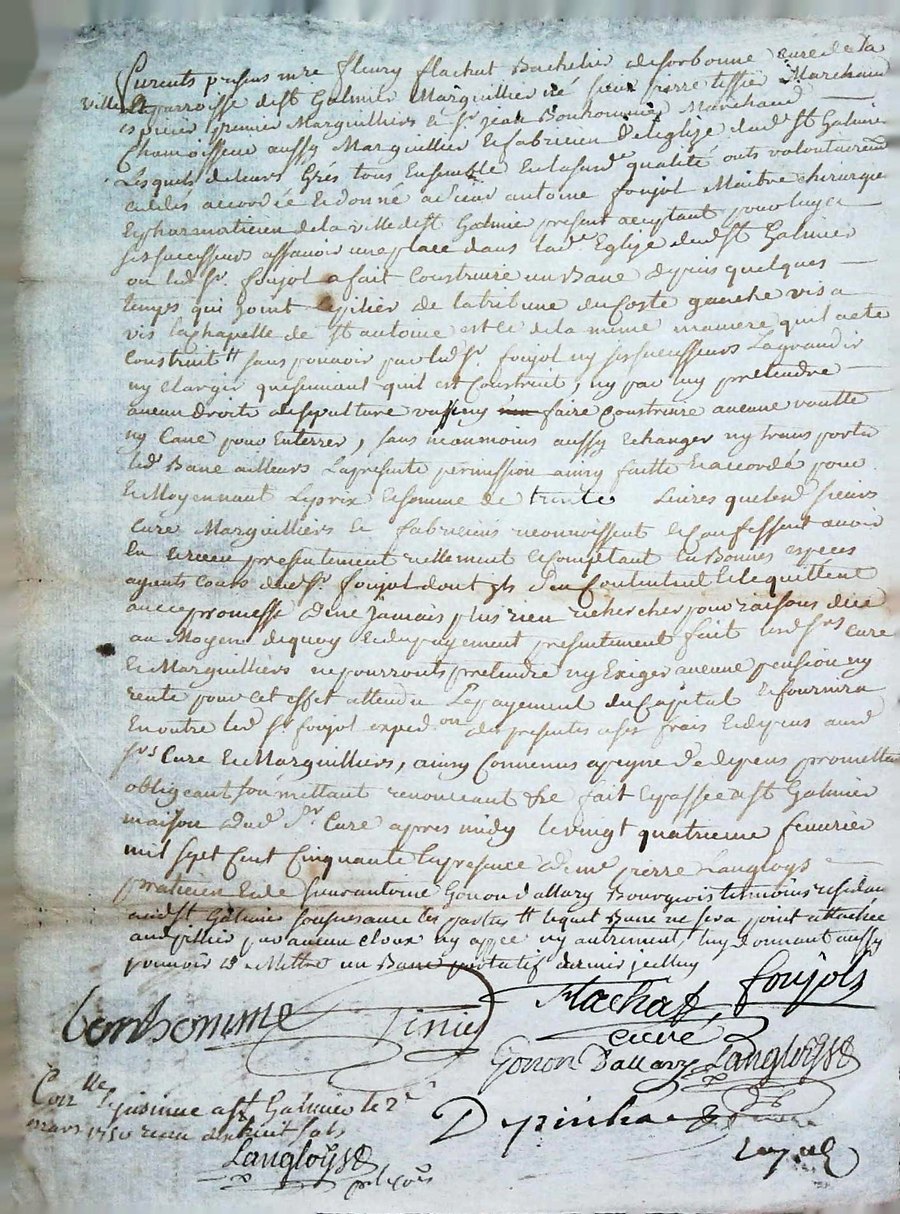 Furents presens mre fleury flachat Bachelier de sorbonne curé de la
ville Et parroisse de st Galmier Marguillier né sieur pierre Marchand
Espicier premier Marguilliers et sr jean Bonhomme Marchand
Chamoisseur aussy Marguillier Et fabricien de L'Eglise dud st Galmier
Lesquels de leurs Grés tous Ensemble En lasusde qualité onts volontairemt
accordé Et donné a sieur antoine foujol Maitre chirurgien
Et pharmatien de la ville de st Galmier present acceptant pour luy et
ses successeurs assavoir une place dans lade Eglise dud st Galmier
ou led sr. foujol a fait Construire un Banc depuis quelques
temps qui joint le pilier de la tribune du Costé gauche vis a
vis la chapelle de st antoine Et ce de la même maniere quil a eté
Construit sans pouvoir par led sr foujol ny ses successeurs L'agrandir
ny Elargir que quil est Construit, ny par luy pretendre
aucun droit de sepulture ny faire construire aucune voutte
ny Cave pour Enterrer, sans neanmoins aussy Echanger ny transporter
led Banc ailleurs La presente permission ainsy faitte Et accordé pour
Et Moyennant Le prix Et somme de trente Livres que lesd sieurs
Curé Marguilliers Et fabriciens reconnoissent Et Confessent avoir
Eu Et receu presentement reellement Et Comptant En Bonnes especes
ayants Cours dud sr. foujol dont ils L'en Contentent Et le quittent
avec promesse de ne Jamais plus rien rechercher pour raisons de ce
au Moyen de quoy Et du payement presentement fait lesd srs Curé
Et Marguilliers ne pourront pretendre ny Exiger aucune pension ny
rente pour cet effet attendu Le payement du Capital Et fournira
En outre led sr foujol expedon des presentes a ses frais Et depens aud
srs Curé Et Marguilliers, ainsy Convenus a peyne de depens promettant
obligeant soumettant renonceant &c fait Et passé a st Galmier
maison dud sr Curé apres midy le vingt quatrieme fevrier
mil sept Cent Cinquante En presence de me pierre Langloys
praticien Et de sieur antoine Gonon d'allary Bourgeois temoins residants
aud st Galmier soussignés avec les parties lequel Banc ne sera point attachée
aud pillier par aucun cloux ny ny autrement, luy donnant aussy
pouvoir de Mettre un Banc portatif
bonhomme Flachat foujols
curé
Gonon Dallary Langloys
Conlle Et insinué a st Galmier le 2e
mars 1750 receu dix huit sols
Depinha
Langloys